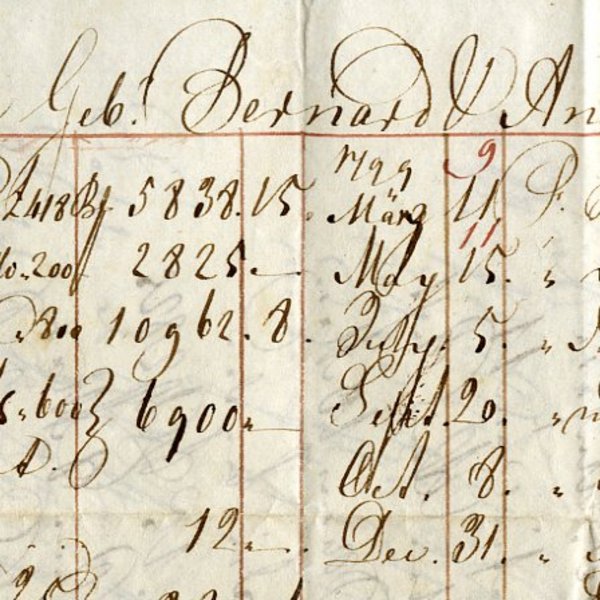 Geb.r Bernard & An
1799 9
418 5838. 15. März 11
11
200 2825 — May 15. "
800 10962. 8. July. 5. "
600 6900 " — Sept. 20. "
A. Oct. 8. "
12 " — Dec. 31. "